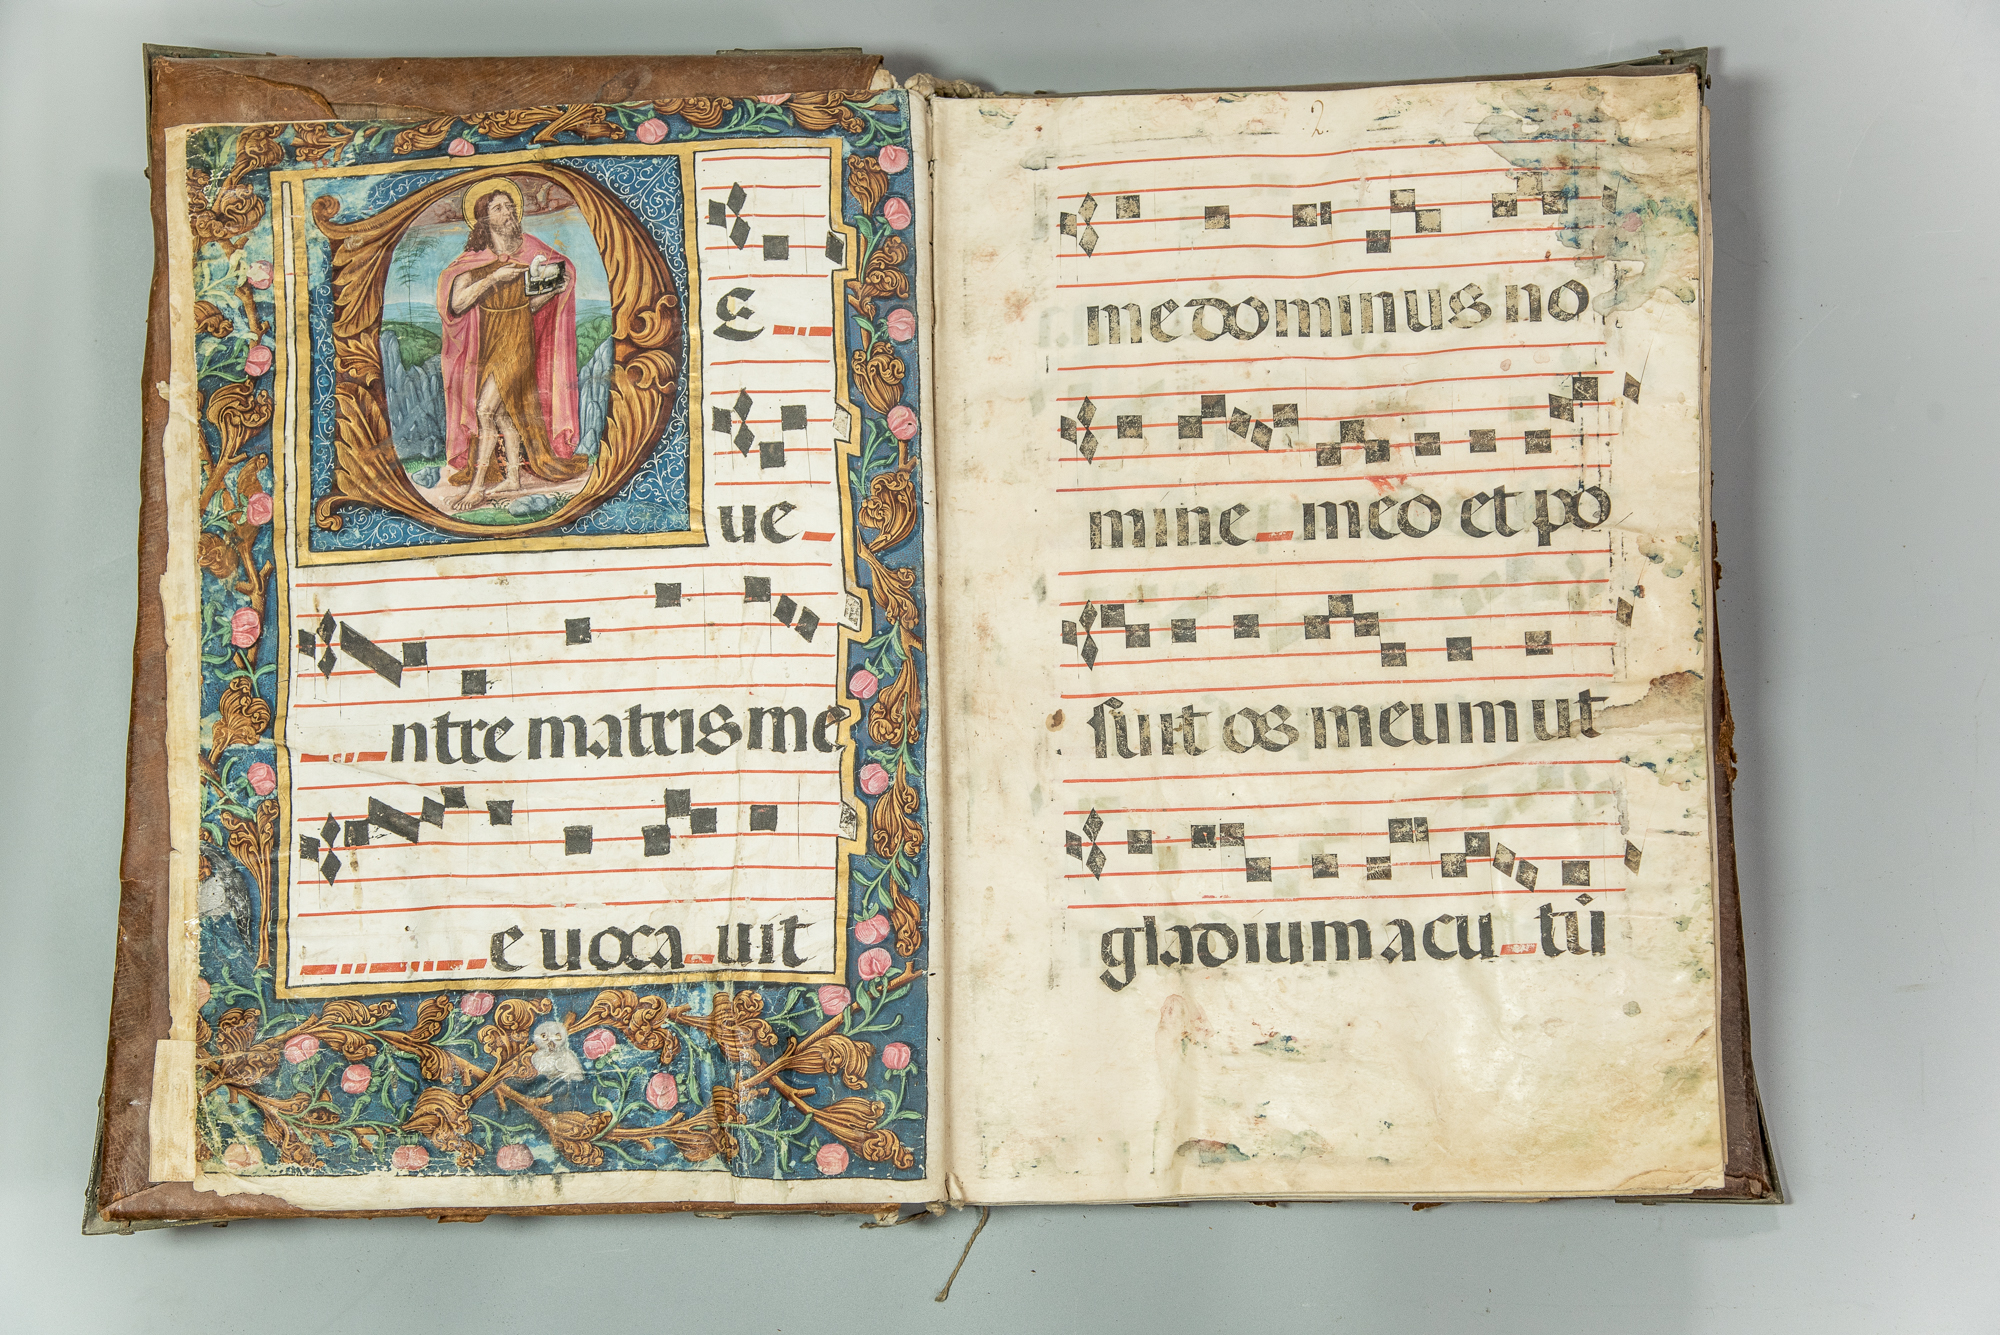 DE
ue
ntre matris me
e uoca uit
2
me dominus no
mine meo et po
suit os meum ut
gladium acu tū